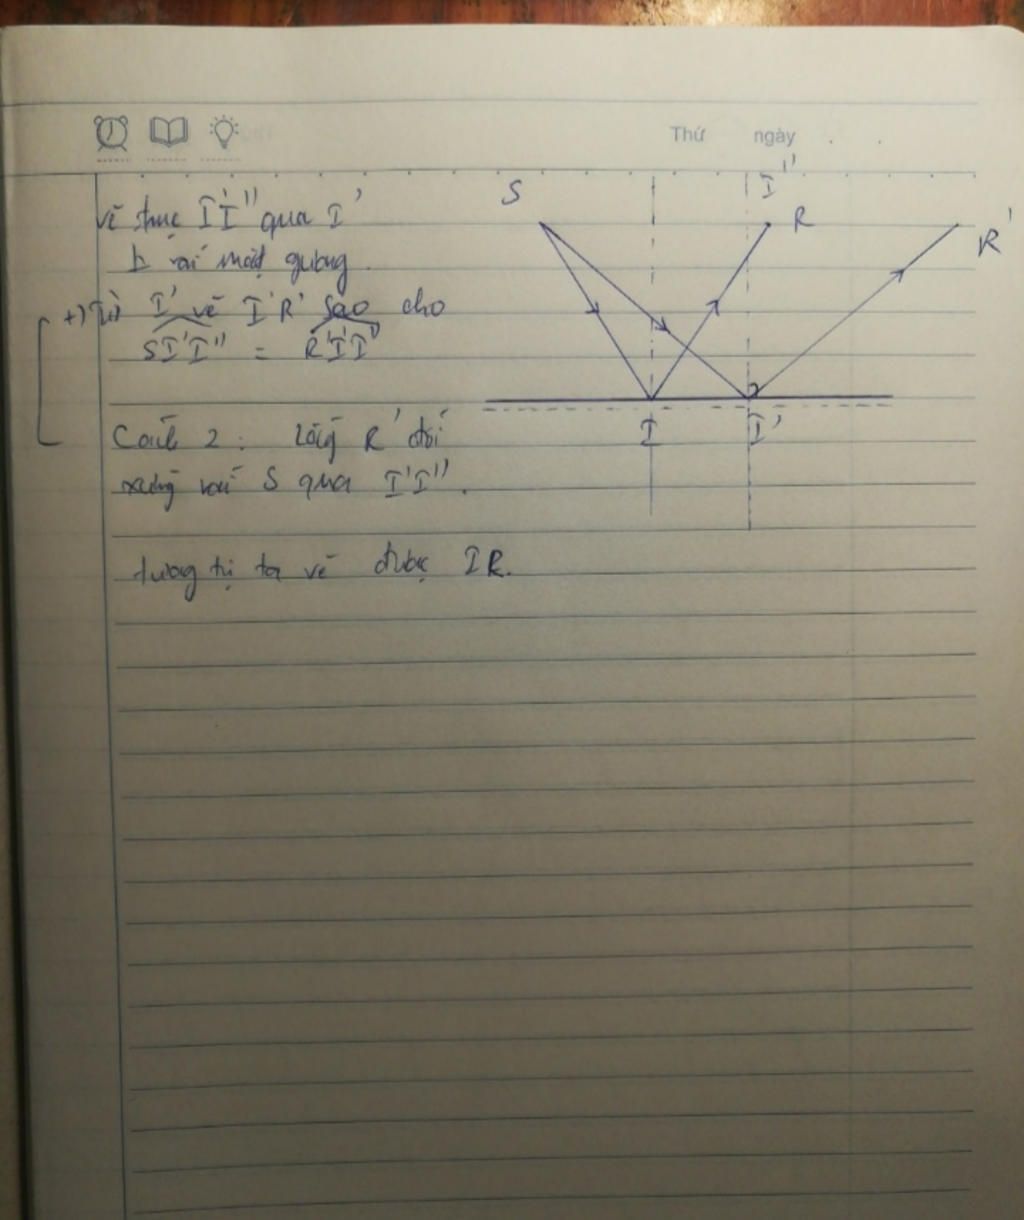 Thứ ngày
vẽ trục I'I'' qua I'
⊥ với mặt gương.
+) Từ I' vẽ I'R' sao cho
SI'I'' = R'I'I''
Cách 2: lấy R' đối
xứng với S qua I'I''.
tương tự ta vẽ được IR.
S
I''
R
R'
I
I'